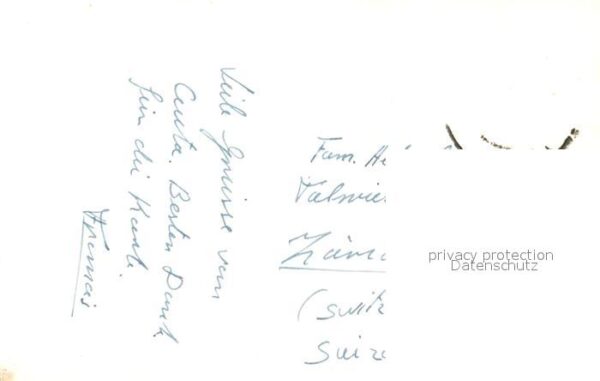 Liebe Grüsse von
Ceuta. Besten Dank
für die Karte.
Fam.
Zür
(Switz
Suiz
privacy protection
Datenschutz